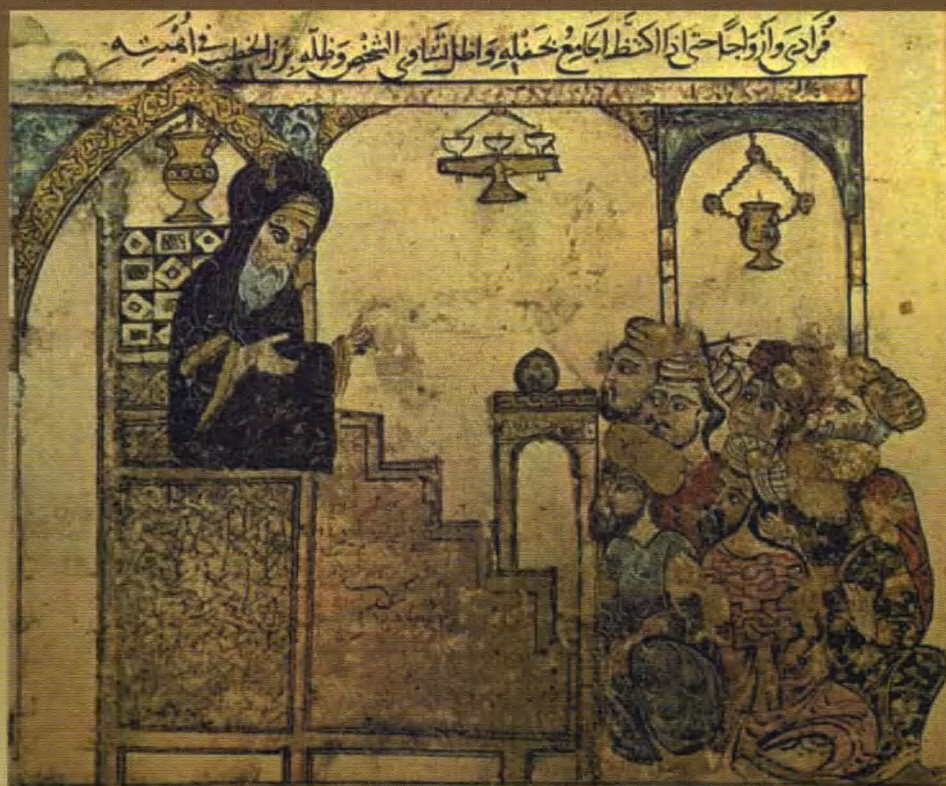 فرادى وأزواجا حتى اذا اكتظ الجامع بحفله واظل تساوي الشخص وظله برز الخطيب في أهبته